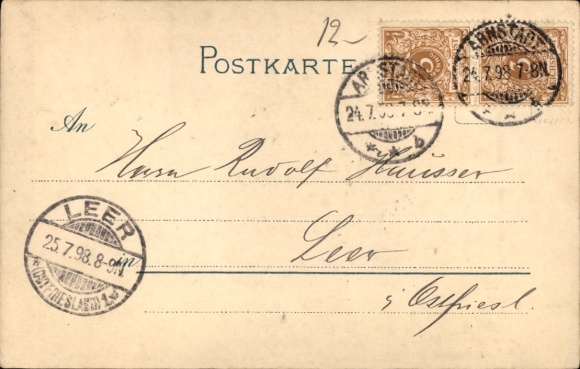 12
POSTKARTE
ARNSTADT
24.7.98.7-8N.
ARNSTADT
24.7.98.7-8N.
b
An
Herrn Rudolf Häusser
LEER
25.7.98.8-9N.
(OSTFRIESLAND)
in
Leer
i/Ostfriesl.